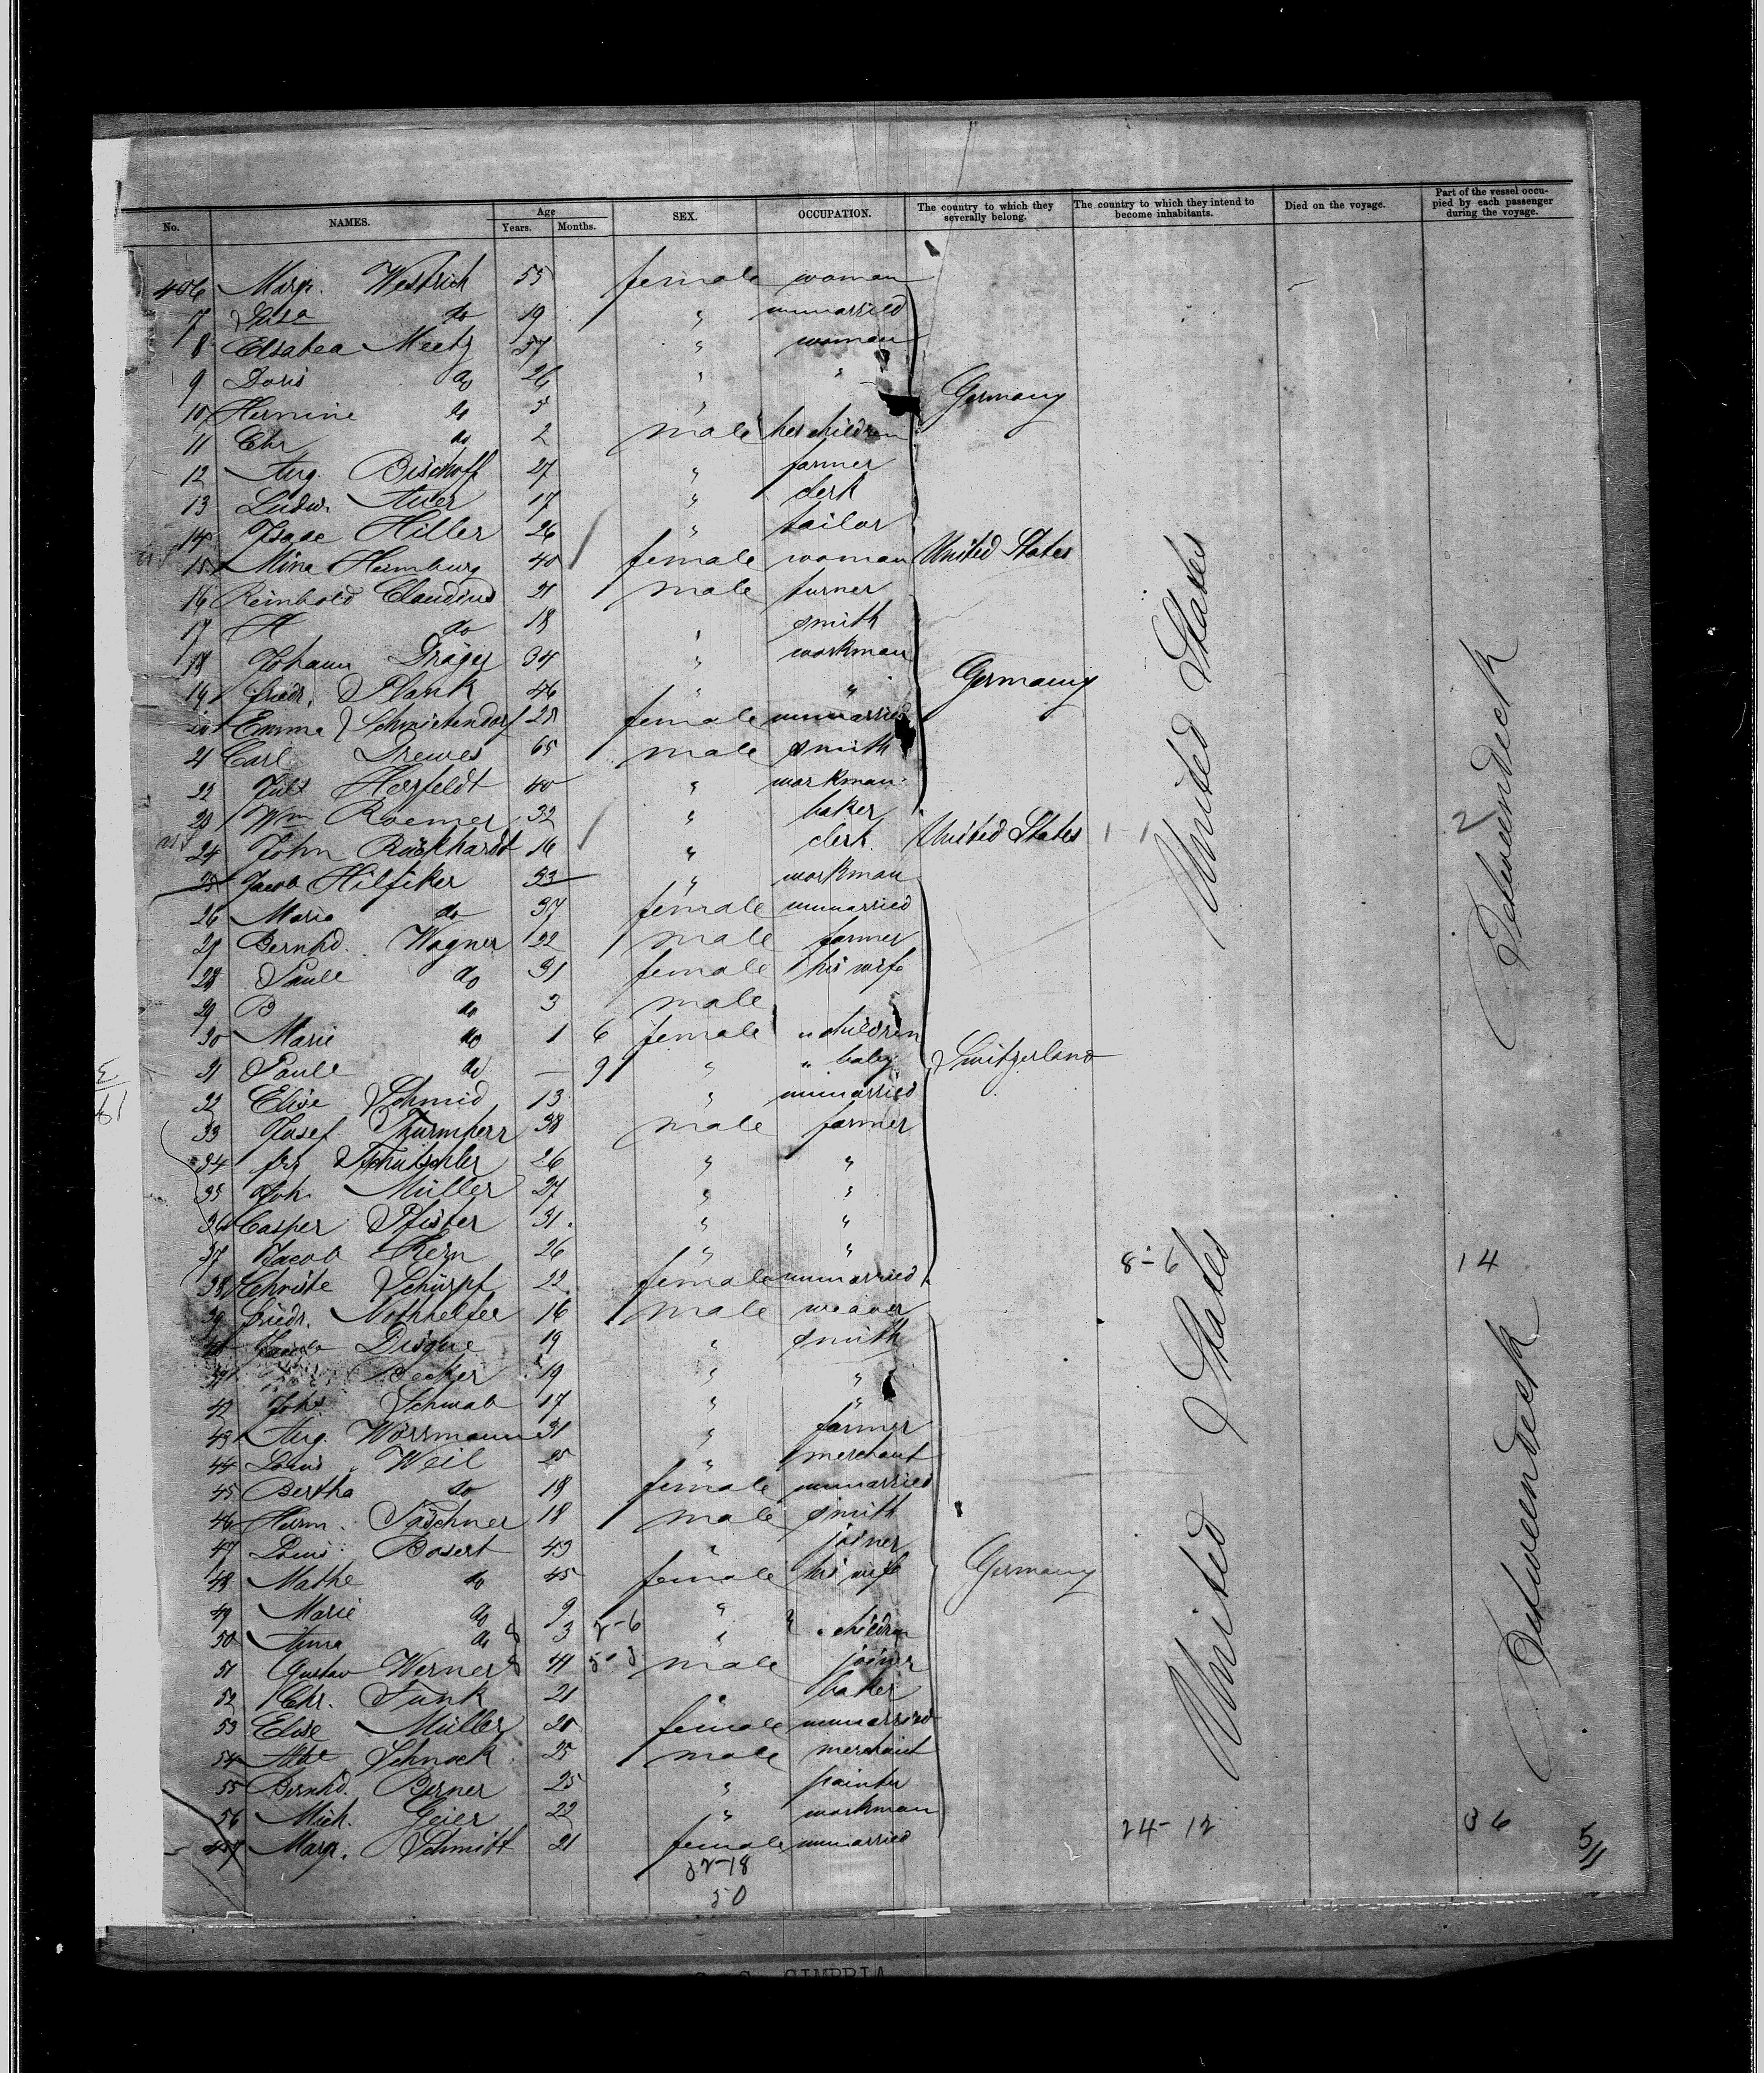 No. NAMES. Age Years. Months. SEX. OCCUPATION. The country to which they severally belong. The country to which they intend to become inhabitants. Died on the voyage. Part of the vessel occupied by each passenger during the voyage.
406 Marg. Westrich 55 female woman
7 Luisa do 19 " unmarried
8 Elsabea Meetz 57 " woman
9 Doris do 26 " "
10 Hermine do 5 "
Germany
11 Chr do 2 male her children
12 Aug. Bischoff 27 " farmer
13 Ludw. Auer 17 " clerk
14 Isaac Hiller 26 " tailor
15 Mina Heimburg 40 female woman United States
16 Reinhold Claudius 21 male turner
17 H do 18 " smith
18 Johann Präger 34 " workman
Germany
19 Friedr. Plank 46 " "
20 Emma Schmietendorf 28 female unmarried
21 Carl Drewes 65 male smith
22 Juls Heerfeldt 40 " workman
23 Wm Roemer 32 " baker
24 John Rückhardt 16 " clerk United States 1-1 2
25 Jacob Hilfiker 33 " workman
26 Maria do 37 female unmarried
27 Bernhd. Wagner 22 male farmer
28 Paule do 31 female his wife
29 B do 3 male
30 Marie do 1 6 female " children
31 Paule do — 9 " " baby Switzerland
32 Elise Schmid 13 " unmarried
33 Josef Thurmherr 38 male farmer
34 26 " "
35 Joh. Müller 27 " "
36 Casper Pfister 31 " "
37 Jacob Kern 26 " "
8-6 14
38 Christe Schürpf 22 female unmarried
39 Friedr. Nothhelfer 16 male weaver
40 Jacob Disque 19 " smith
Becker 19 " "
42 Johs Schwab 17 " "
43 Aug. Wörrmann 31 " farmer
44 Louis Weil 25 " merchant
45 Bertha do 18 female unmarried
46 Herm. Täschner 18 male smith
47 Louis Bosert 43 " joiner
48 Mathe do 45 female his wife Germany
49 Marie do 9 "
50 Anna do 3 2-6 " " children
51 Gustav Werner 41 5-3 male joiner
52 Chr. Funk 21 " baker
53 Elise Müller 20 female unmarried
54 Schnoek 25 male merchant
55 Bernhd. Berner 25 " painter
56 Mich. Geier 22 " workman
24-12 36
457 Marg. Schmitt 21 female unmarried
32-18
50
United States
United States
Betweendeck
Betweendeck
5/1